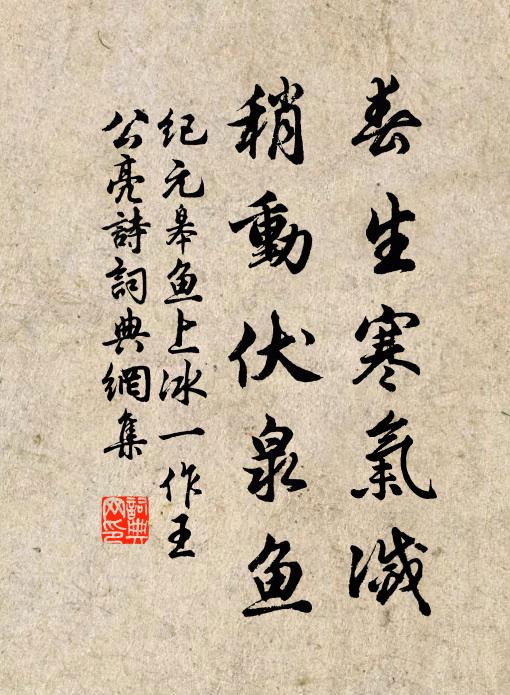 春生寒氣減
稍動伏泉鱼
纪元皋鱼上冰一作王
公亮詩詞典網集
詞典网印